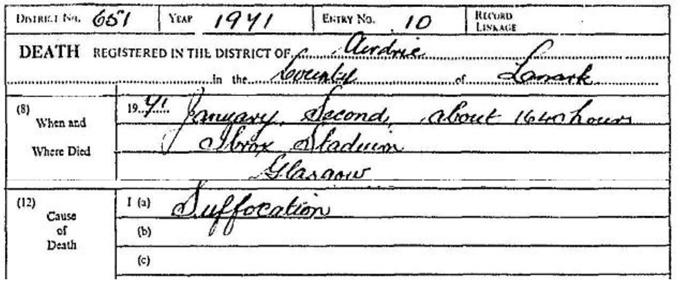 DISTRICT NO. 651 YEAR 1971 ENTRY NO. 10 RECORD LINKAGE
DEATH REGISTERED IN THE DISTRICT OF Airdrie
in the County of Lanark
(8) When and Where Died 1971 January, Second, about 1640 hours
Ibrox Stadium
Glasgow
(12) Cause of Death I (a) Suffocation
(b)
(c)